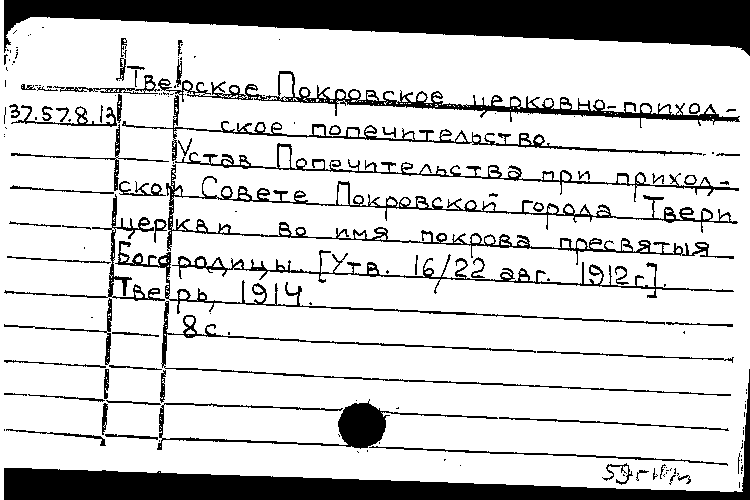 Тверское Покровское церковно-приход-
37.57.8.13.
ское попечительство.
Устав Попечительства при приход-
ском Совете Покровской города Твери
церкви во имя покрова пресвятыя
Богородицы. [Утв. 16/22 авг. 1912г.].
Тверь, 1914.
8 с.